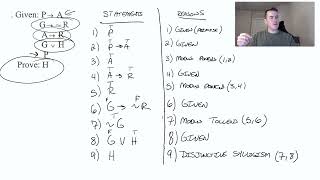 Given: P → A
G → ~R
A → R
G ∨ H
P
Prove: H
STATEMENTS
1) P
2) P → A
3) A
4) A → R
5) R
6) G → ~R
7) ~G
8) G ∨ H
9) H
REASONS
1) GIVEN (PREMISE)
2) GIVEN
3) MODUS PONENS (1,2)
4) GIVEN
5) MODUS PONENS (3,4)
6) GIVEN
7) MODUS TOLLENS (5,6)
8) GIVEN
9) DISJUNCTIVE SYLLOGISM (7,8)